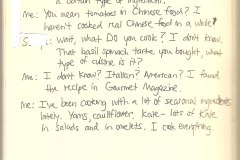 a certain type of ingredient.
Me: You mean tomatoes in Chinese food? I
haven't cooked real Chinese food in a while?
S: Wait, what do you cook? I don't know.
That basil spinach tarte you bought, what
type of cuisine is it?
Me: I don't know? Italian? American? I found
the recipe in Gourmet Magazine.
Me: I've been cooking with a lot of seasonal ingredients
lately. Yams, cauliflower, kale - lots of kale
in salads and in omelets. I cook everything.